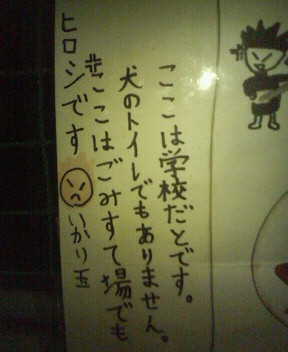 ここは学校だとです。
犬のトイレでもありません。
ここはごみすて場でも
ヒロシです
いかり玉